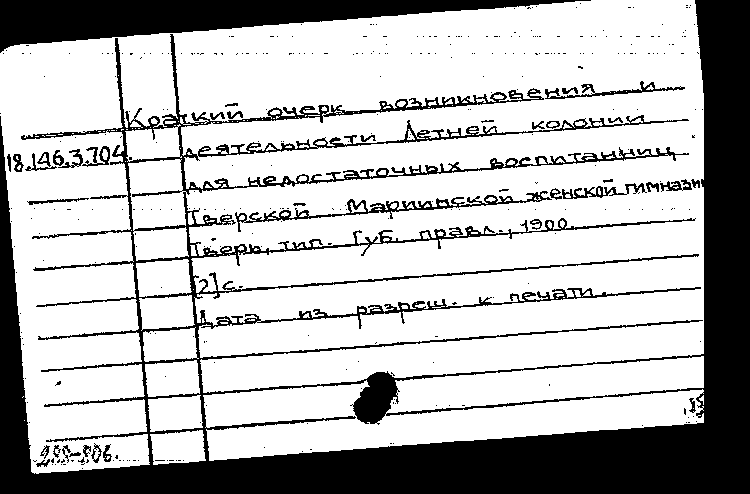 Краткий очерк возникновения и
18.146.3.704. деятельности Летней колонии
для недостаточных воспитанниц
Тверской Мариинской женской гимназии
Тверь, тип. Губ. правл., 1900.
[2] с.
Дата из разреш. к печати.